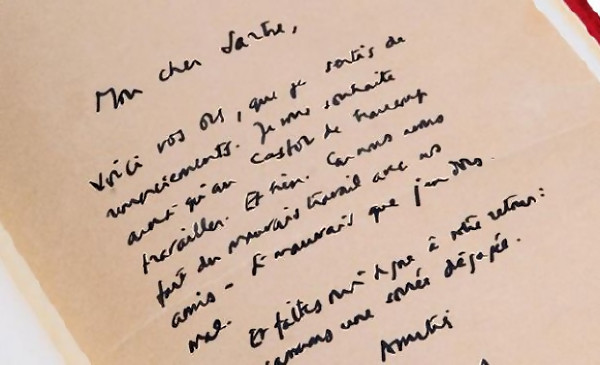 Mon cher Sartre,
Voici vos ors, que je sertis de
remerciements. Je vous souhaite
qu'au Castor de beaucoup
travailler. Et bien. Car nous avons
fait du mauvais travail avec nos
amis - si mauvais que j'en dors
mal.
Et faites moi signe à votre retour:
une soirée dégagée.
Amitiés